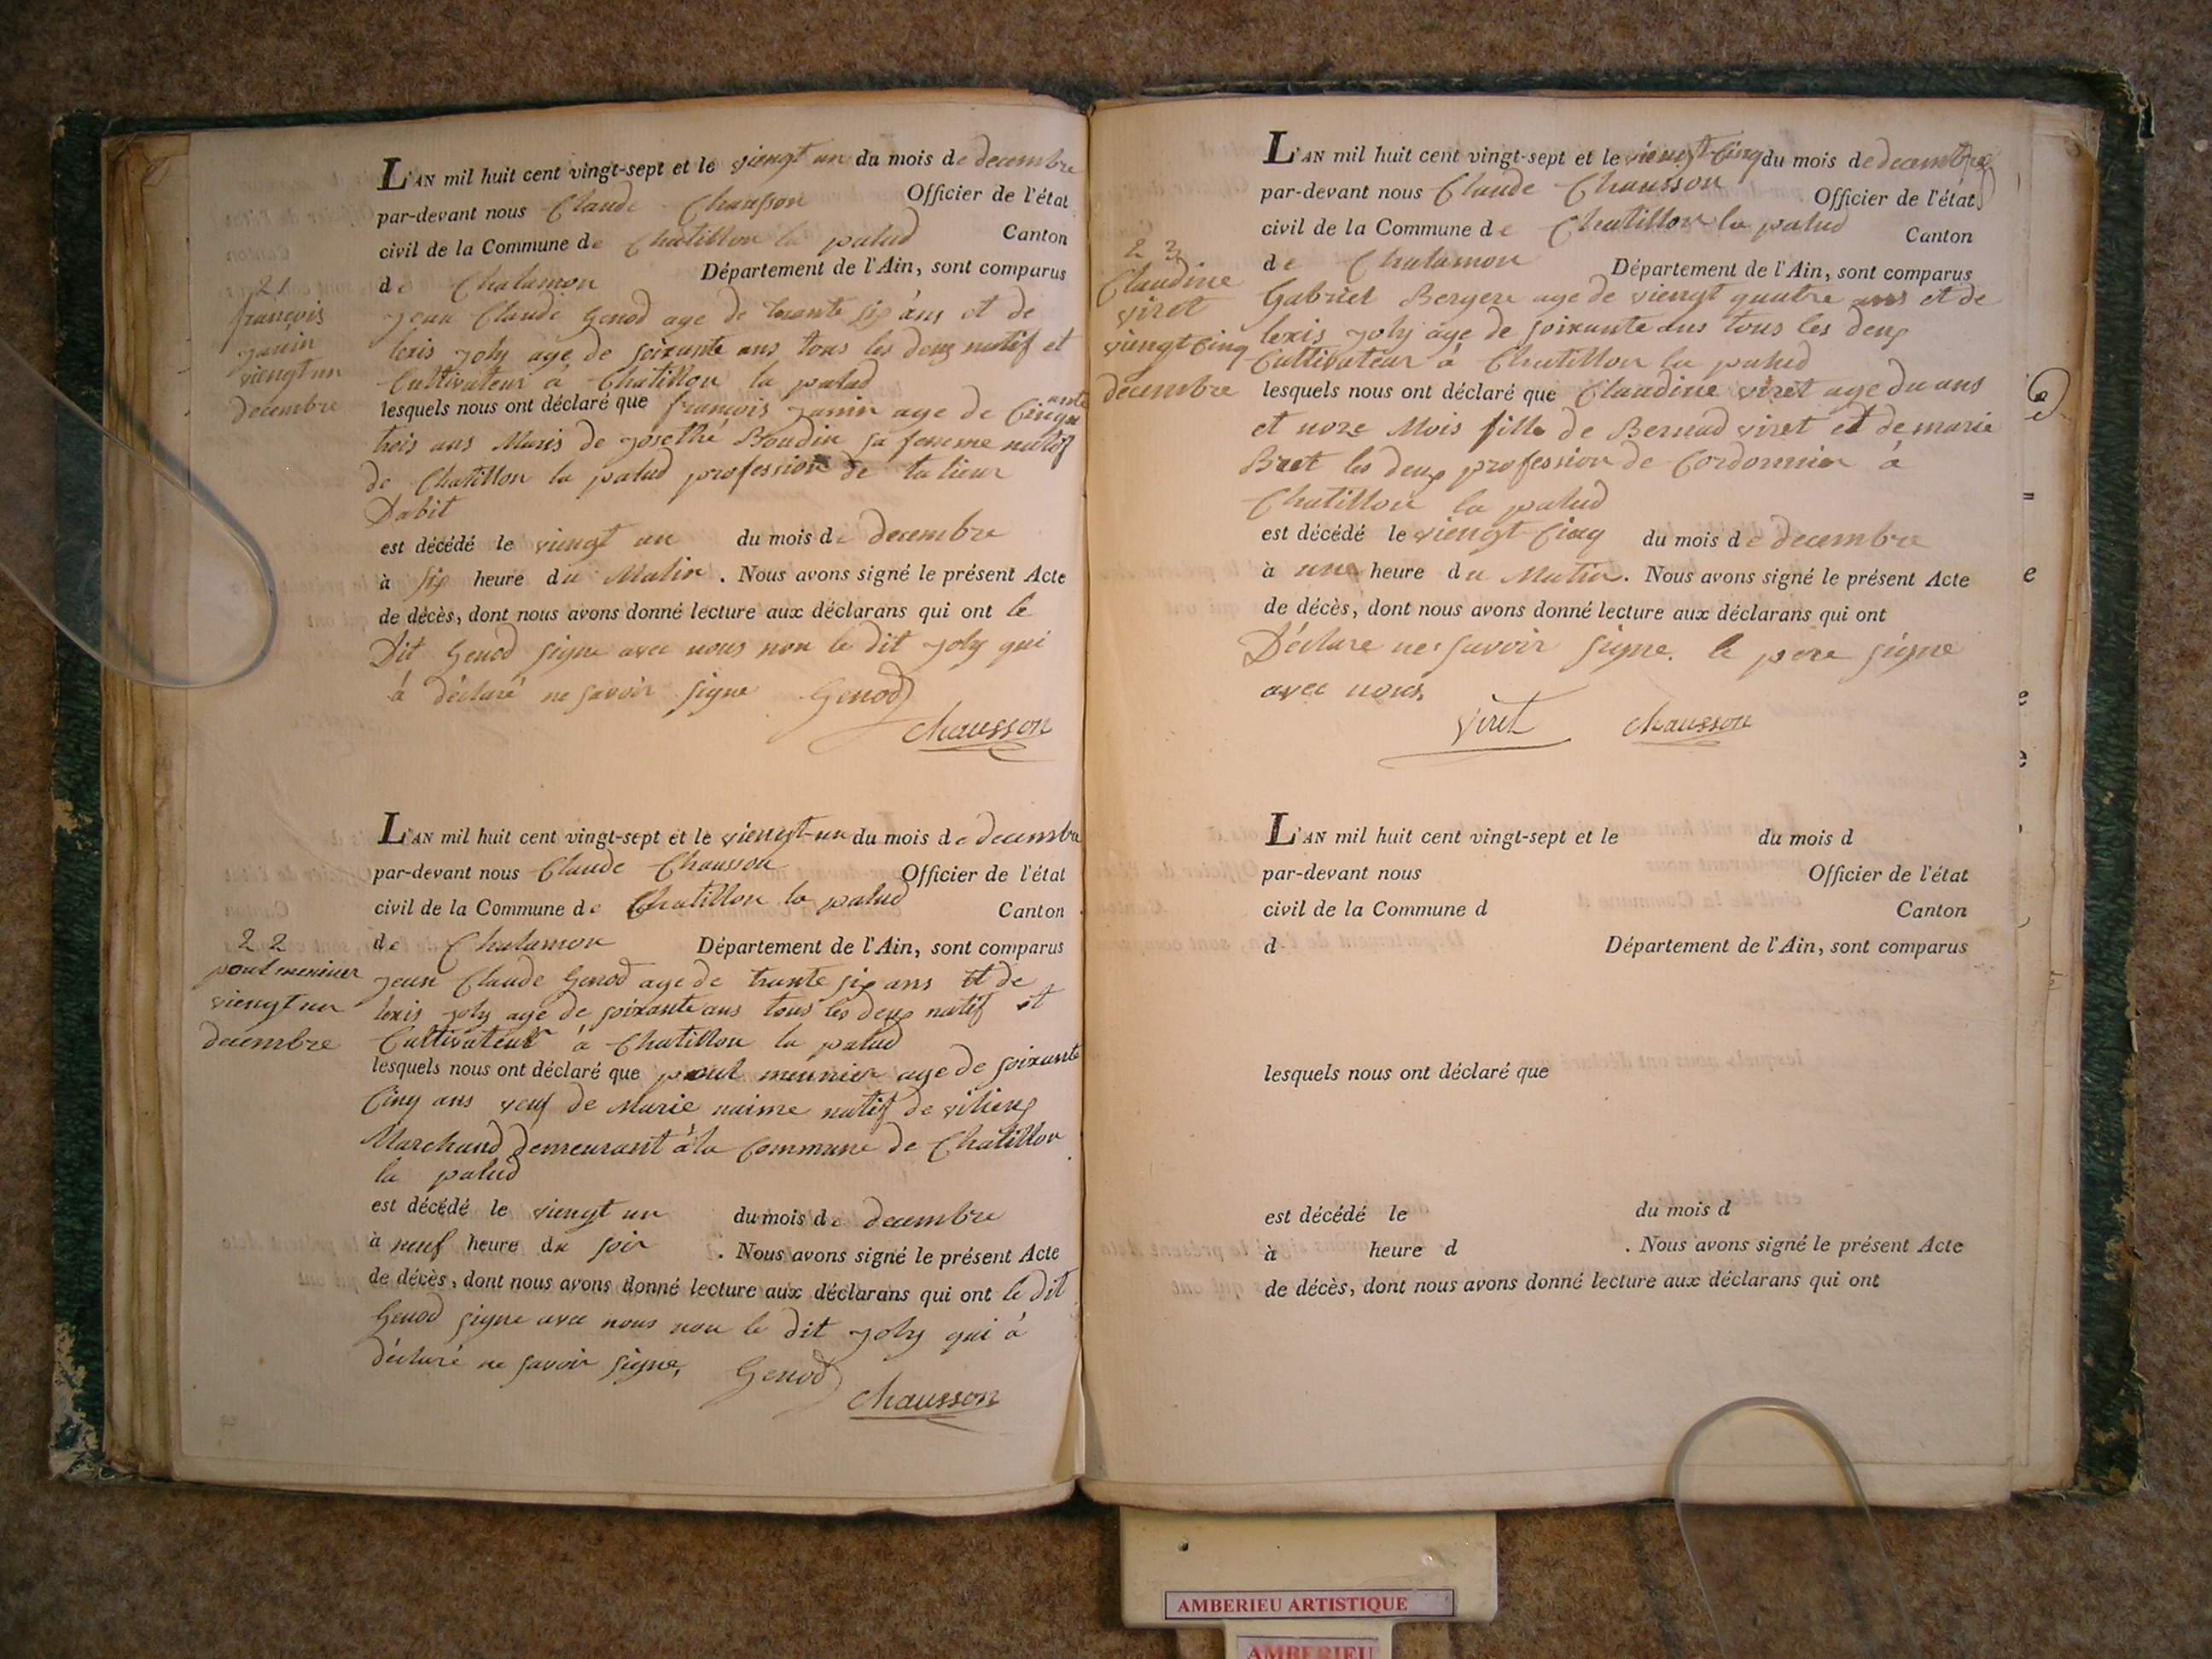 L'AN mil huit cent vingt-sept et le viengt un du mois de decembre
par-devant nous Claude Chausson Officier de l'état
civil de la Commune de Chatillon la palud Canton
de Chalamon Département de l'Ain, sont comparus
21
françois
janin
viengt un
decembre
jean Claude Genod age de trante six ans et de
lexis joly age de soixante ans tous les deux natif et
Cultivateur à Chatillon la palud
lesquels nous ont déclaré que françois janin age de Cinquante
trois ans Maris de josethé Boudin sa femme natif
de Chatillon la palud profession de talieur
Dabit
est décédé le viengt un du mois de decembre
à six heure du Matin . Nous avons signé le présent Acte
de décès, dont nous avons donné lecture aux déclarans qui ont le
Dit Genod signe avec nous non le dit joly qui
à déclaré ne savoir signe Genod
Chausson
L'AN mil huit cent vingt-sept et le viengt-un du mois de decembre
par-devant nous Claude Chausson Officier de l'état
civil de la Commune de Chatillon la palud Canton
de Chalamon Département de l'Ain, sont comparus
22
poul meniuer
viengt un
decembre
jean Claude Genod age de trante six ans et de
lexis joly age de soixante ans tous les deux natif et
Cultivateur à Chatillon la palud
lesquels nous ont déclaré que poul meunier age de soixante
Cinq ans veuf de Marie naime natif de vilieux
Marchand Demeurant à la Commune de Chatillon
la palud
est décédé le viengt un du mois de decembre
à neuf heure du soir . Nous avons signé le présent Acte
de décès, dont nous avons donné lecture aux déclarans qui ont le dit
Genod signe avec nous non le dit joly qui à
déclaré ne savoir signe, Genod
Chausson
L'AN mil huit cent vingt-sept et le viengt-Cinq du mois de decembre
par-devant nous Claude Chausson Officier de l'état
civil de la Commune de Chatillon la palud Canton
de Chalamon Département de l'Ain, sont comparus
23
Claudine
viret
viengt Cinq
decembre
Gabriel Bergere age de viengt quatre ans et de
lexis joly age de soixante ans tous les deux
Cultivateur à Chatillon la palud
lesquels nous ont déclaré que Claudine viret age du ans
et noze Mois fille de Bernad viret et de marie
Bret les deux profession de Cordonnier à
Chatillon la palud
est décédé le viengt Cinq du mois de decembre
à une heure du Matin . Nous avons signé le présent Acte
de décès, dont nous avons donné lecture aux déclarans qui ont
Déclare ne savoir signe. le pere signe
avec nous
Viret Chausson
L'AN mil huit cent vingt-sept et le du mois d
par-devant nous Officier de l'état
civil de la Commune d Canton
d Département de l'Ain, sont comparus
lesquels nous ont déclaré que
est décédé le du mois d
à heure d . Nous avons signé le présent Acte
de décès, dont nous avons donné lecture aux déclarans qui ont
AMBERIEU ARTISTIQUE
AMBERIEU